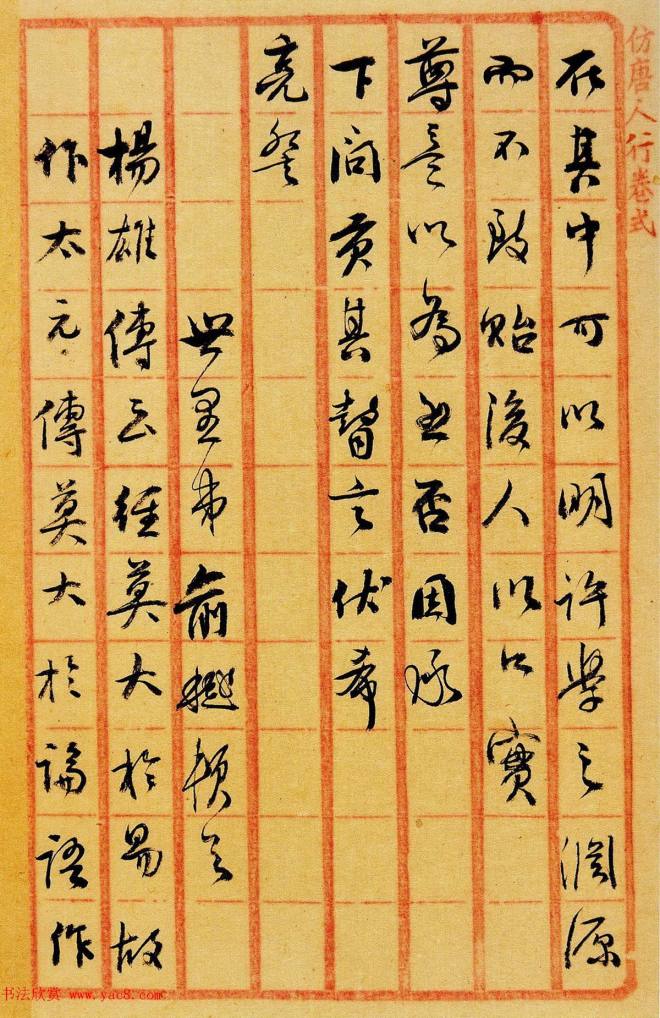 仿唐人行卷式
在其中可以明許學之淵源
而不致貽後人以口實
尊意以為然否因承
下問貢其瞽言伏希
亮詧
世愚弟俞樾頓首
楊雄傳云經莫大於易故
作太元傳莫大於論語作
书法欣赏 www.yac8.com